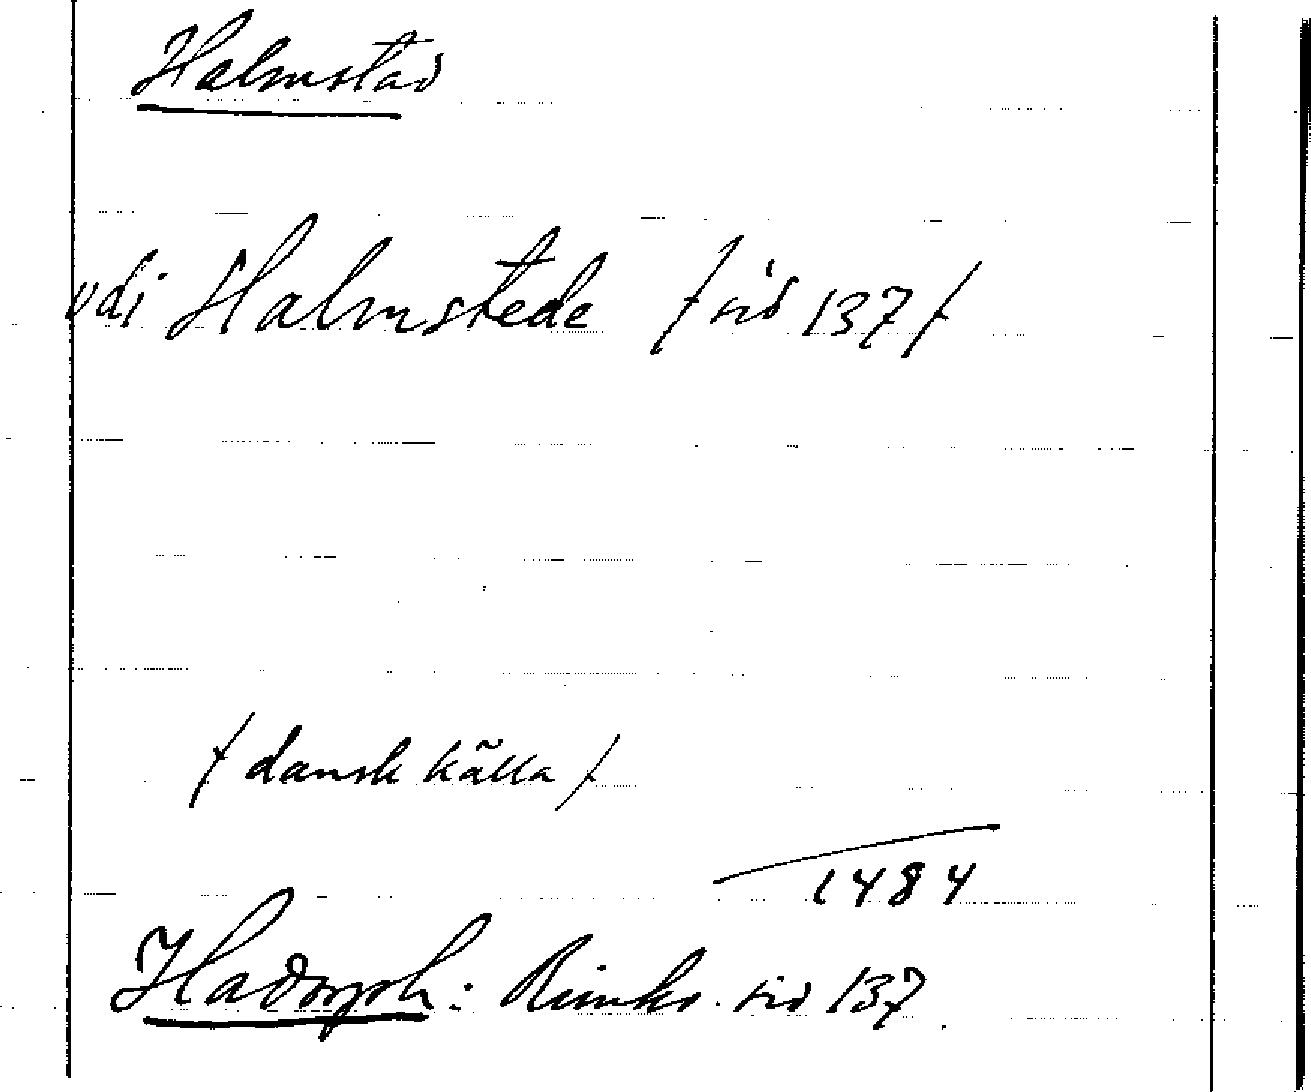 Halmstad
vdi Halmstede / sid 137 /
/ dansk källa /
1484
Hadorph: Rimkr. sid 137.